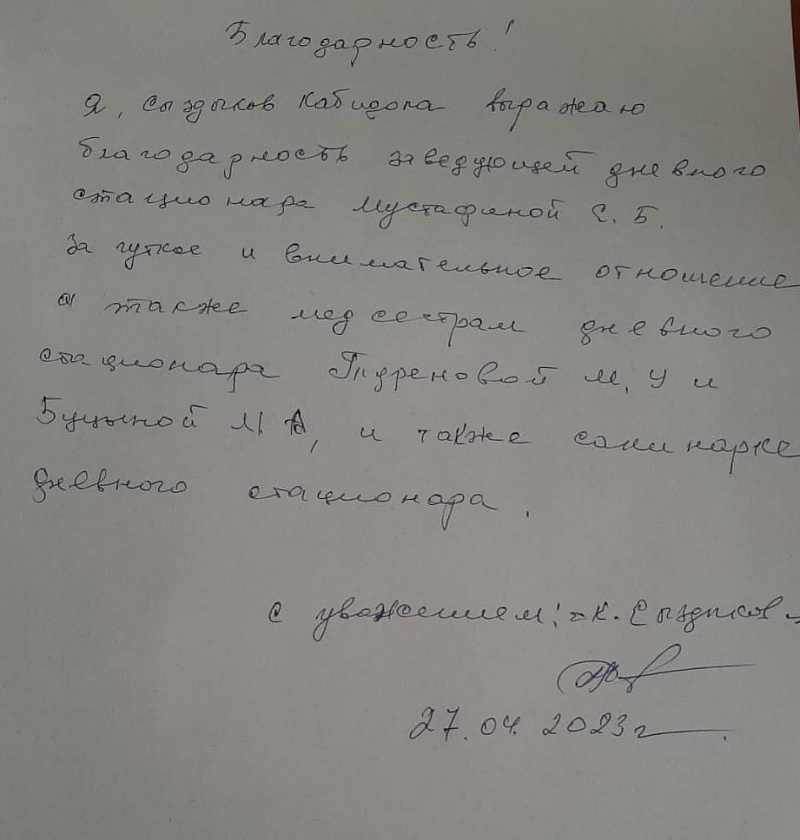 Благодарность!
Я, Сыздыков Кабидола выражаю
благодарность заведующей дневного
стационара Мустафиной С. Б.
За чуткое и внимательное отношение
а также медсестрам дневного
стационара Тюреновой М. У и
Буцыной М А, и также санинарке
дневного стационара.
С уважением: - К. Сыздыков
27.04.2023г